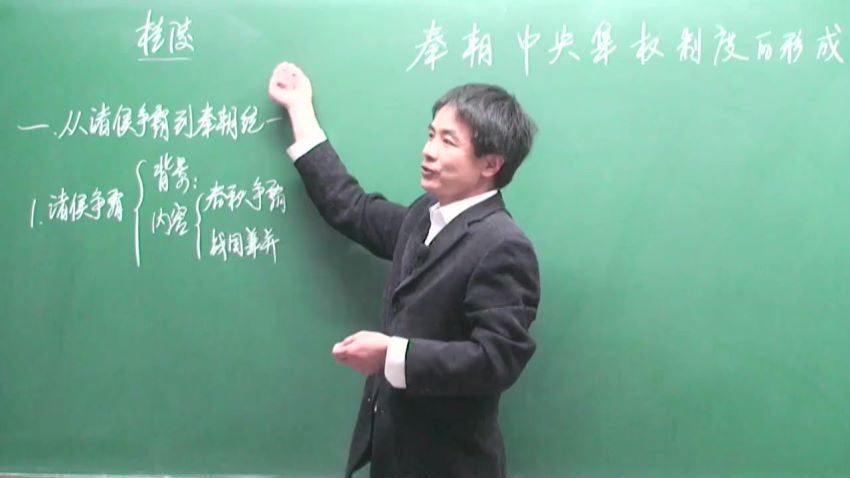 桂陵
秦朝中央集权制度的形成
一.从诸侯争霸到秦朝统一
1.诸侯争霸
背景:
内容
春秋争霸
战国兼并